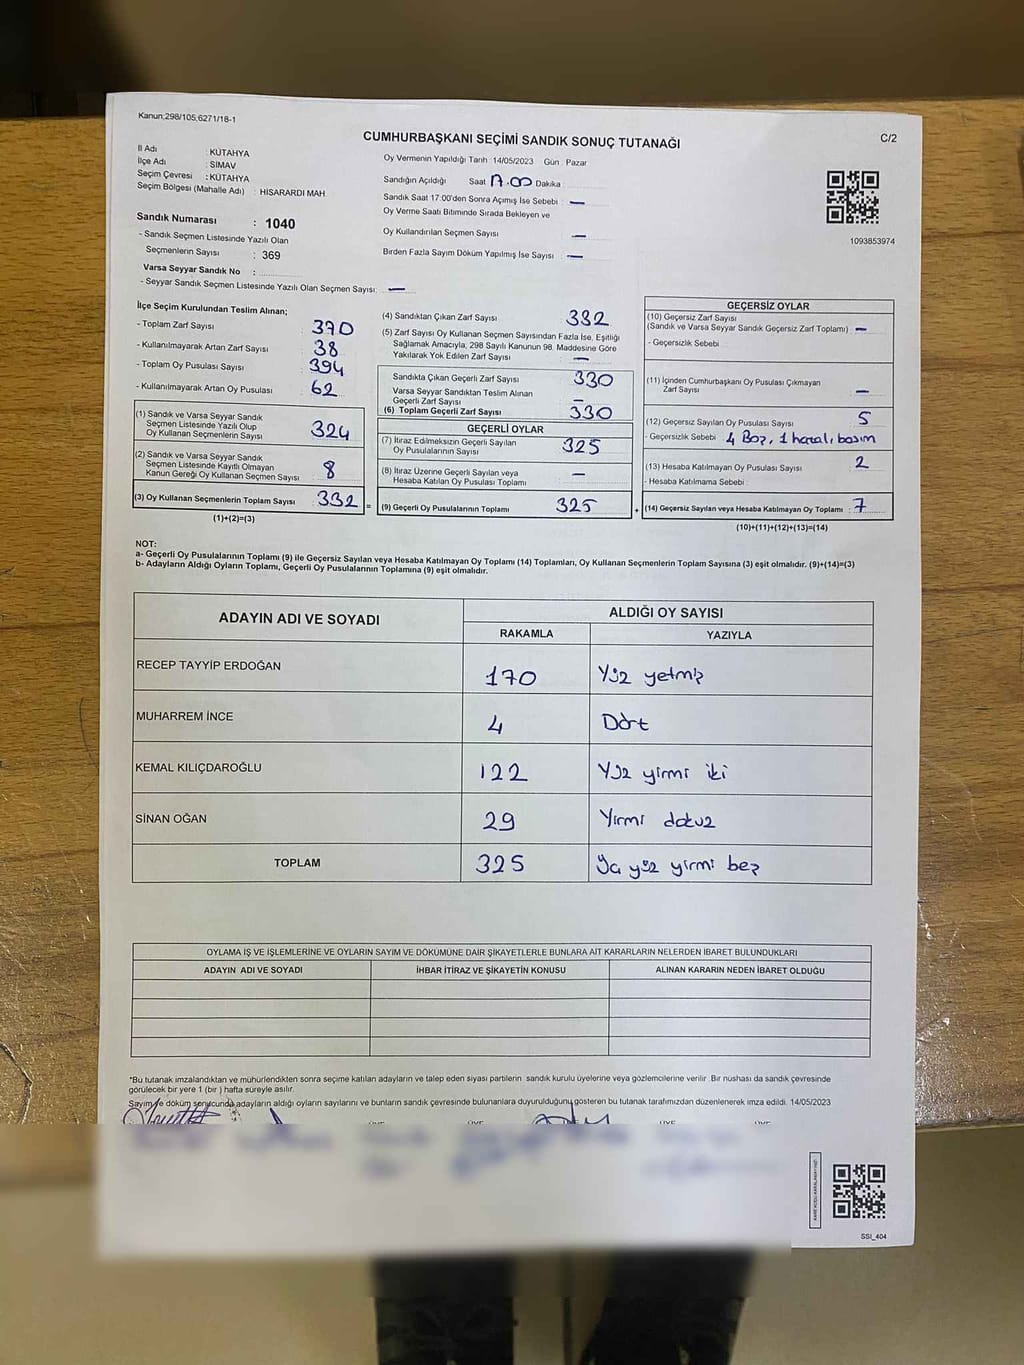 Kanun;298/105,6271/18-1
C/2
CUMHURBAŞKANI SEÇİMİ SANDIK SONUÇ TUTANAĞI
İl Adı : KÜTAHYA
İlçe Adı : SİMAV
Seçim Çevresi : KÜTAHYA
Seçim Bölgesi (Mahalle Adı) : HİSARARDI MAH
Sandık Numarası : 1040
- Sandık Seçmen Listesinde Yazılı Olan
Seçmenlerin Sayısı : 369
Varsa Seyyar Sandık No :
- Seyyar Sandık Seçmen Listesinde Yazılı Olan Seçmen Sayısı: —
Oy Vermenin Yapıldığı Tarih :14/05/2023 Gün : Pazar
Sandığın Açıldığı Saat 17.00 Dakika
Sandık Saat 17:00'den Sonra Açımış İse Sebebi : —
Oy Verme Saati Bitiminde Sırada Bekleyen ve
Oy Kullandırılan Seçmen Sayısı —
Birden Fazla Sayım Döküm Yapılmış İse Sayısı : —
1093853974
İlçe Seçim Kurulundan Teslim Alınan;
- Toplam Zarf Sayısı : 370
- Kullanılmayarak Artan Zarf Sayısı : 38
- Toplam Oy Pusulası Sayısı : 394
- Kullanılmayarak Artan Oy Pusulası : 62
(1) Sandık ve Varsa Seyyar Sandık
Seçmen Listesinde Yazılı Olup
Oy Kullanan Seçmenlerin Sayısı : 324
(2) Sandık ve Varsa Seyyar Sandık
Seçmen Listesinde Kayıtlı Olmayan
Kanun Gereği Oy Kullanan Seçmen Sayısı : 8
(3) Oy Kullanan Seçmenlerin Toplam Sayısı : 332 =
(1)+(2)=(3)
(4) Sandıktan Çıkan Zarf Sayısı : 332
(5) Zarf Sayısı Oy Kullanan Seçmen Sayısından Fazla İse, Eşitliği
Sağlamak Amacıyla, 298 Sayılı Kanunun 98. Maddesine Göre
Yakılarak Yok Edilen Zarf Sayısı : —
Sandıkta Çıkan Geçerli Zarf Sayısı : 330
Varsa Seyyar Sandıktan Teslim Alınan
Geçerli Zarf Sayısı : —
(6) Toplam Geçerli Zarf Sayısı : 330
GEÇERLİ OYLAR
(7) İtiraz Edilmeksizin Geçerli Sayılan
Oy Pusulalarının Sayısı : 325
(8) İtiraz Üzerine Geçerli Sayılan veya
Hesaba Katılan Oy Pusulası Toplamı : —
(9) Geçerli Oy Pusulalarının Toplamı : 325 +
GEÇERSİZ OYLAR
(10) Geçersiz Zarf Sayısı
(Sandık ve Varsa Seyyar Sandık Geçersiz Zarf Toplamı) : —
- Geçersizlik Sebebi :
(11) İçinden Cumhurbaşkanı Oy Pusulası Çıkmayan
Zarf Sayısı : —
(12) Geçersiz Sayılan Oy Pusulası Sayısı : 5
- Geçersizlik Sebebi : 4 Boş, 1 hatalı basım
(13) Hesaba Katılmayan Oy Pusulası Sayısı : 2
- Hesaba Katılmama Sebebi :
(14) Geçersiz Sayılan veya Hesaba Katılmayan Oy Toplamı : 7
(10)+(11)+(12)+(13)=(14)
NOT:
a- Geçerli Oy Pusulalarının Toplamı (9) ile Geçersiz Sayılan veya Hesaba Katılmayan Oy Toplamı (14) Toplamları, Oy Kullanan Seçmenlerin Toplam Sayısına (3) eşit olmalıdır. (9)+(14)=(3)
b- Adayların Aldığı Oyların Toplamı, Geçerli Oy Pusulalarının Toplamına (9) eşit olmalıdır.
ADAYIN ADI VE SOYADI ALDIĞI OY SAYISI
RAKAMLA YAZIYLA
RECEP TAYYİP ERDOĞAN 170 Yüz yetmiş
MUHARREM İNCE 4 Dört
KEMAL KILIÇDAROĞLU 122 Yüz yirmi iki
SİNAN OĞAN 29 Yirmi dokuz
TOPLAM 325 yüz yirmi beş
OYLAMA İŞ VE İŞLEMLERİNE VE OYLARIN SAYIM VE DÖKÜMÜNE DAİR ŞİKAYETLERLE BUNLARA AİT KARARLARIN NELERDEN İBARET BULUNDUKLARI
ADAYIN ADI VE SOYADI İHBAR İTİRAZ VE ŞİKAYETİN KONUSU ALINAN KARARIN NEDEN İBARET OLDUĞU
*Bu tutanak imzalandıktan ve mühürlendikten sonra seçime katılan adayların ve talep eden siyasi partilerin sandık kurulu üyelerine veya gözlemcilerine verilir. Bir nüshası da sandık çevresinde
görülecek bir yere 1 (bir ) hafta süreyle asılır.
Sayım ve döküm sonucunda adayların aldığı oyların sayılarını ve bunların sandık çevresinde bulunanlara duyurulduğunu gösteren bu tutanak tarafımızdan düzenlenerek imza edildi. 14/05/2023
SSI_404